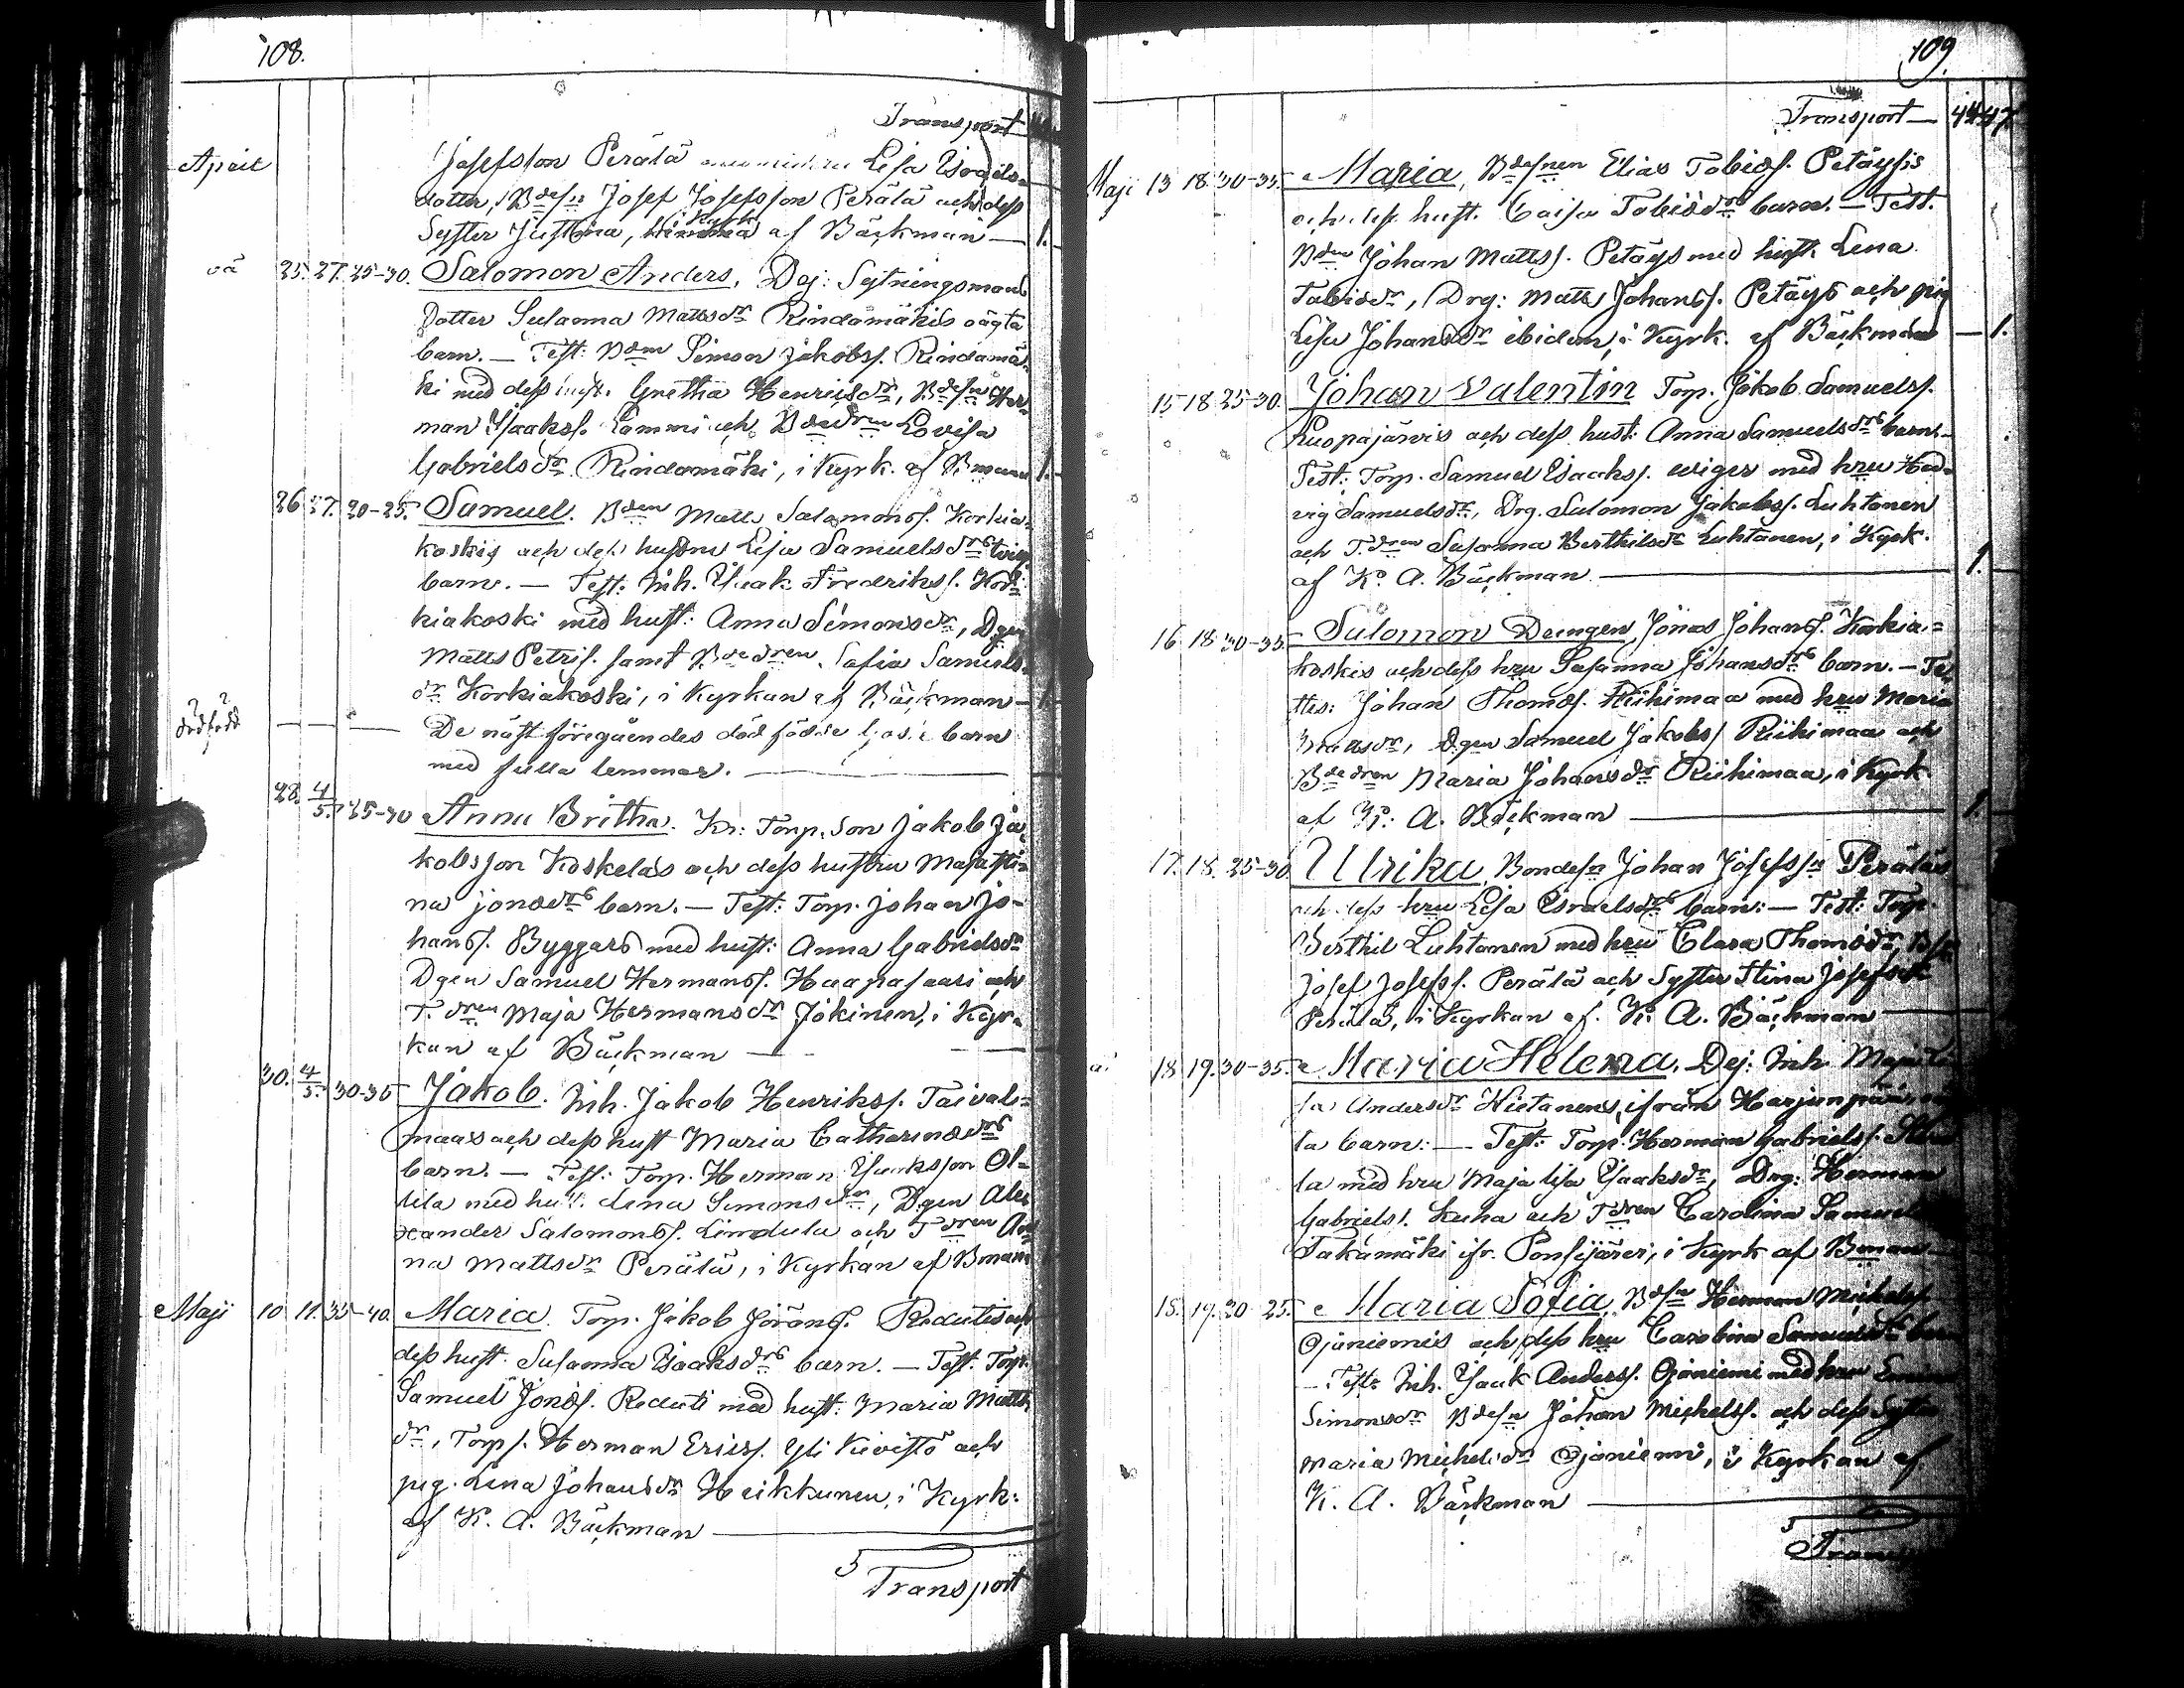 108.
Transport
April
Josefsson Perälä Lisa Israels-
dotter, Bdesn Josef Josefsson Perälä och dess
Syster Justina, i Kyrk af Bäckman — 1.
oä 25. 27. 25-30. Salomon Anders, Dej: Sytningsmans
Dotter Susanna Mattsdr Rindamäkis oägta
barn. — Test: Bdm Simon Jakobss. Rindamä-
ki med dess hust. Gretha Henricsdr, Bdesn Her-
man Isaakss. Lammi och Bdedren Lovisa
Gabrielsdr Rindamäki, i Kyrk. af Bman 1.
26 27. 20-25. Samuel. Bden Matts Salomonss. Korkia-
koskis och dess hustru Lisa Samuelsdrs
barn. — Test: Inh. Isaak Fredrikss. Kor-
kiakoski med hust: Anna Simonsdr, Dgen
Matts Petriss. samt Bdedren Sofia Samuels-
dr Korkiakoski, i Kyrkan af Bäckman — 1.
? ?
dödfödd — — — De näst föregåendes död födde barn
med fulla lemmar. —
28. 4/5. 35-40 Anna Britha. Kr: Torp. Son Jakob Ja-
kobsson Koskelas och dess hustru Maja Sti-
na Jonsdrs barn. — Test: Torp. Johan Jo-
hanss. Byggars med hust: Anna Gabrielsdr
Dgen Samuel Hermanss. Haapasaari och
T. dren Maja Hermansdr Jokinen, i Kyr-
kan af Bäckman —
30. 4/5. 30-35 Jakob. Inh. Jakob Henrikss. Taival-
maas och dess hust Maria Catharinsdrs
barn. — Test: Torp. Herman Isaaksson Ol-
lila med hust. Lena Simonsdr, Dgen Alex-
xander Salomonss. Lindula och Tdren An-
na Mattsdr Perälä, i Kyrkan af Bman
Maji 10 11. 35-40. Maria. Torp. Jakob Göranss. Redutis och
dess hust. Susanna Isaaksdrs barn. — Test. Torp.
Samuel Jonss. Reduti med hust: Maria Matts
dr, Torps. Herman Ericss. Yli Kivistö och
pig. Lena Johansdr Heikkunen, i Kyrk:
af K. A. Bäckman —
Transport
109.
Transport — 44 47.
Maji 13 18 30-35. Maria, Bdesnen Elias Tobiass. Petäysis
och dess hust. Caisa Tobiasdrs barn. — Test.
Bdm Johan Mattss. Petäys med hust: Lena
Tobiasdr, Drg: Matts Johanss. Petäys och pig
Lisa Johansdr ibidem, i Kyrk. af Bäckman — 1.
15 18 25-30 Johan Valentin Torp. Jakob Samuelss.
Luopajärvis och dess hust: Anna Samuelsdrs barn.
Test: Torp. Samuel Isaakss. med hru Hed-
vig Samuelsdr, Drg. Salomon Jakobss. Luhtanen
och T.dren Susanna Berthilsdr Luhtanen, i Kyrk.
af K. A. Bäckman — 1.
16 18 30-35 Salomon Drengen Jonas Johanss. Korkia-
koskis och dess hru Susanna Johansdrs barn. — Te-
stes: Johan Thomss. Riihimaa med hru Maria
dr, Dgen Samuel Jakobss Riihimaa och
Bdedren Maria Johansdr Riihimaa, i Kyrk
af K. A. Bäckman — 1.
17. 18. 25-30. Ulrika, Bondesn Johan Josefssn Peräläs
och dess hru Lisa Israelsdrs barn: — Test: Torp.
Berthil Luhtanen med hru Clara Thomsdr,
Josef Josefss. Perälä och Syster Stina Josefsdr
Perälä, i Kyrkan af. K. A. Bäckman —
18 19. 30-35. Maria Helena. Dej: Inh. Maja
Andersdr Hietanens, ifrån Harjunpää,
ta barn: — Test: Torp. Herman Gabrielss.
la med hru Maja Lisa Isaaksdr, Drg: Herman
Gabrielss. Kuha och Tdren Carolina Samuels
Takamäki ifr. Ponsijärvi, i Kyrk af Bman —
15. 19. 20-25. Maria Sofia, Bdesn Herman Michelss.
Ojaniemis och dess hru Carolina Samuelsdrs
— Test: Inh. Isaak Anderss. Ojaniemi med hru
Simonsdr Bdesn Johan Michelss. och dess Syster
Maria Michelsdr Ojaniemi, i Kyrkan af
K. A. Bäckman —
Transport